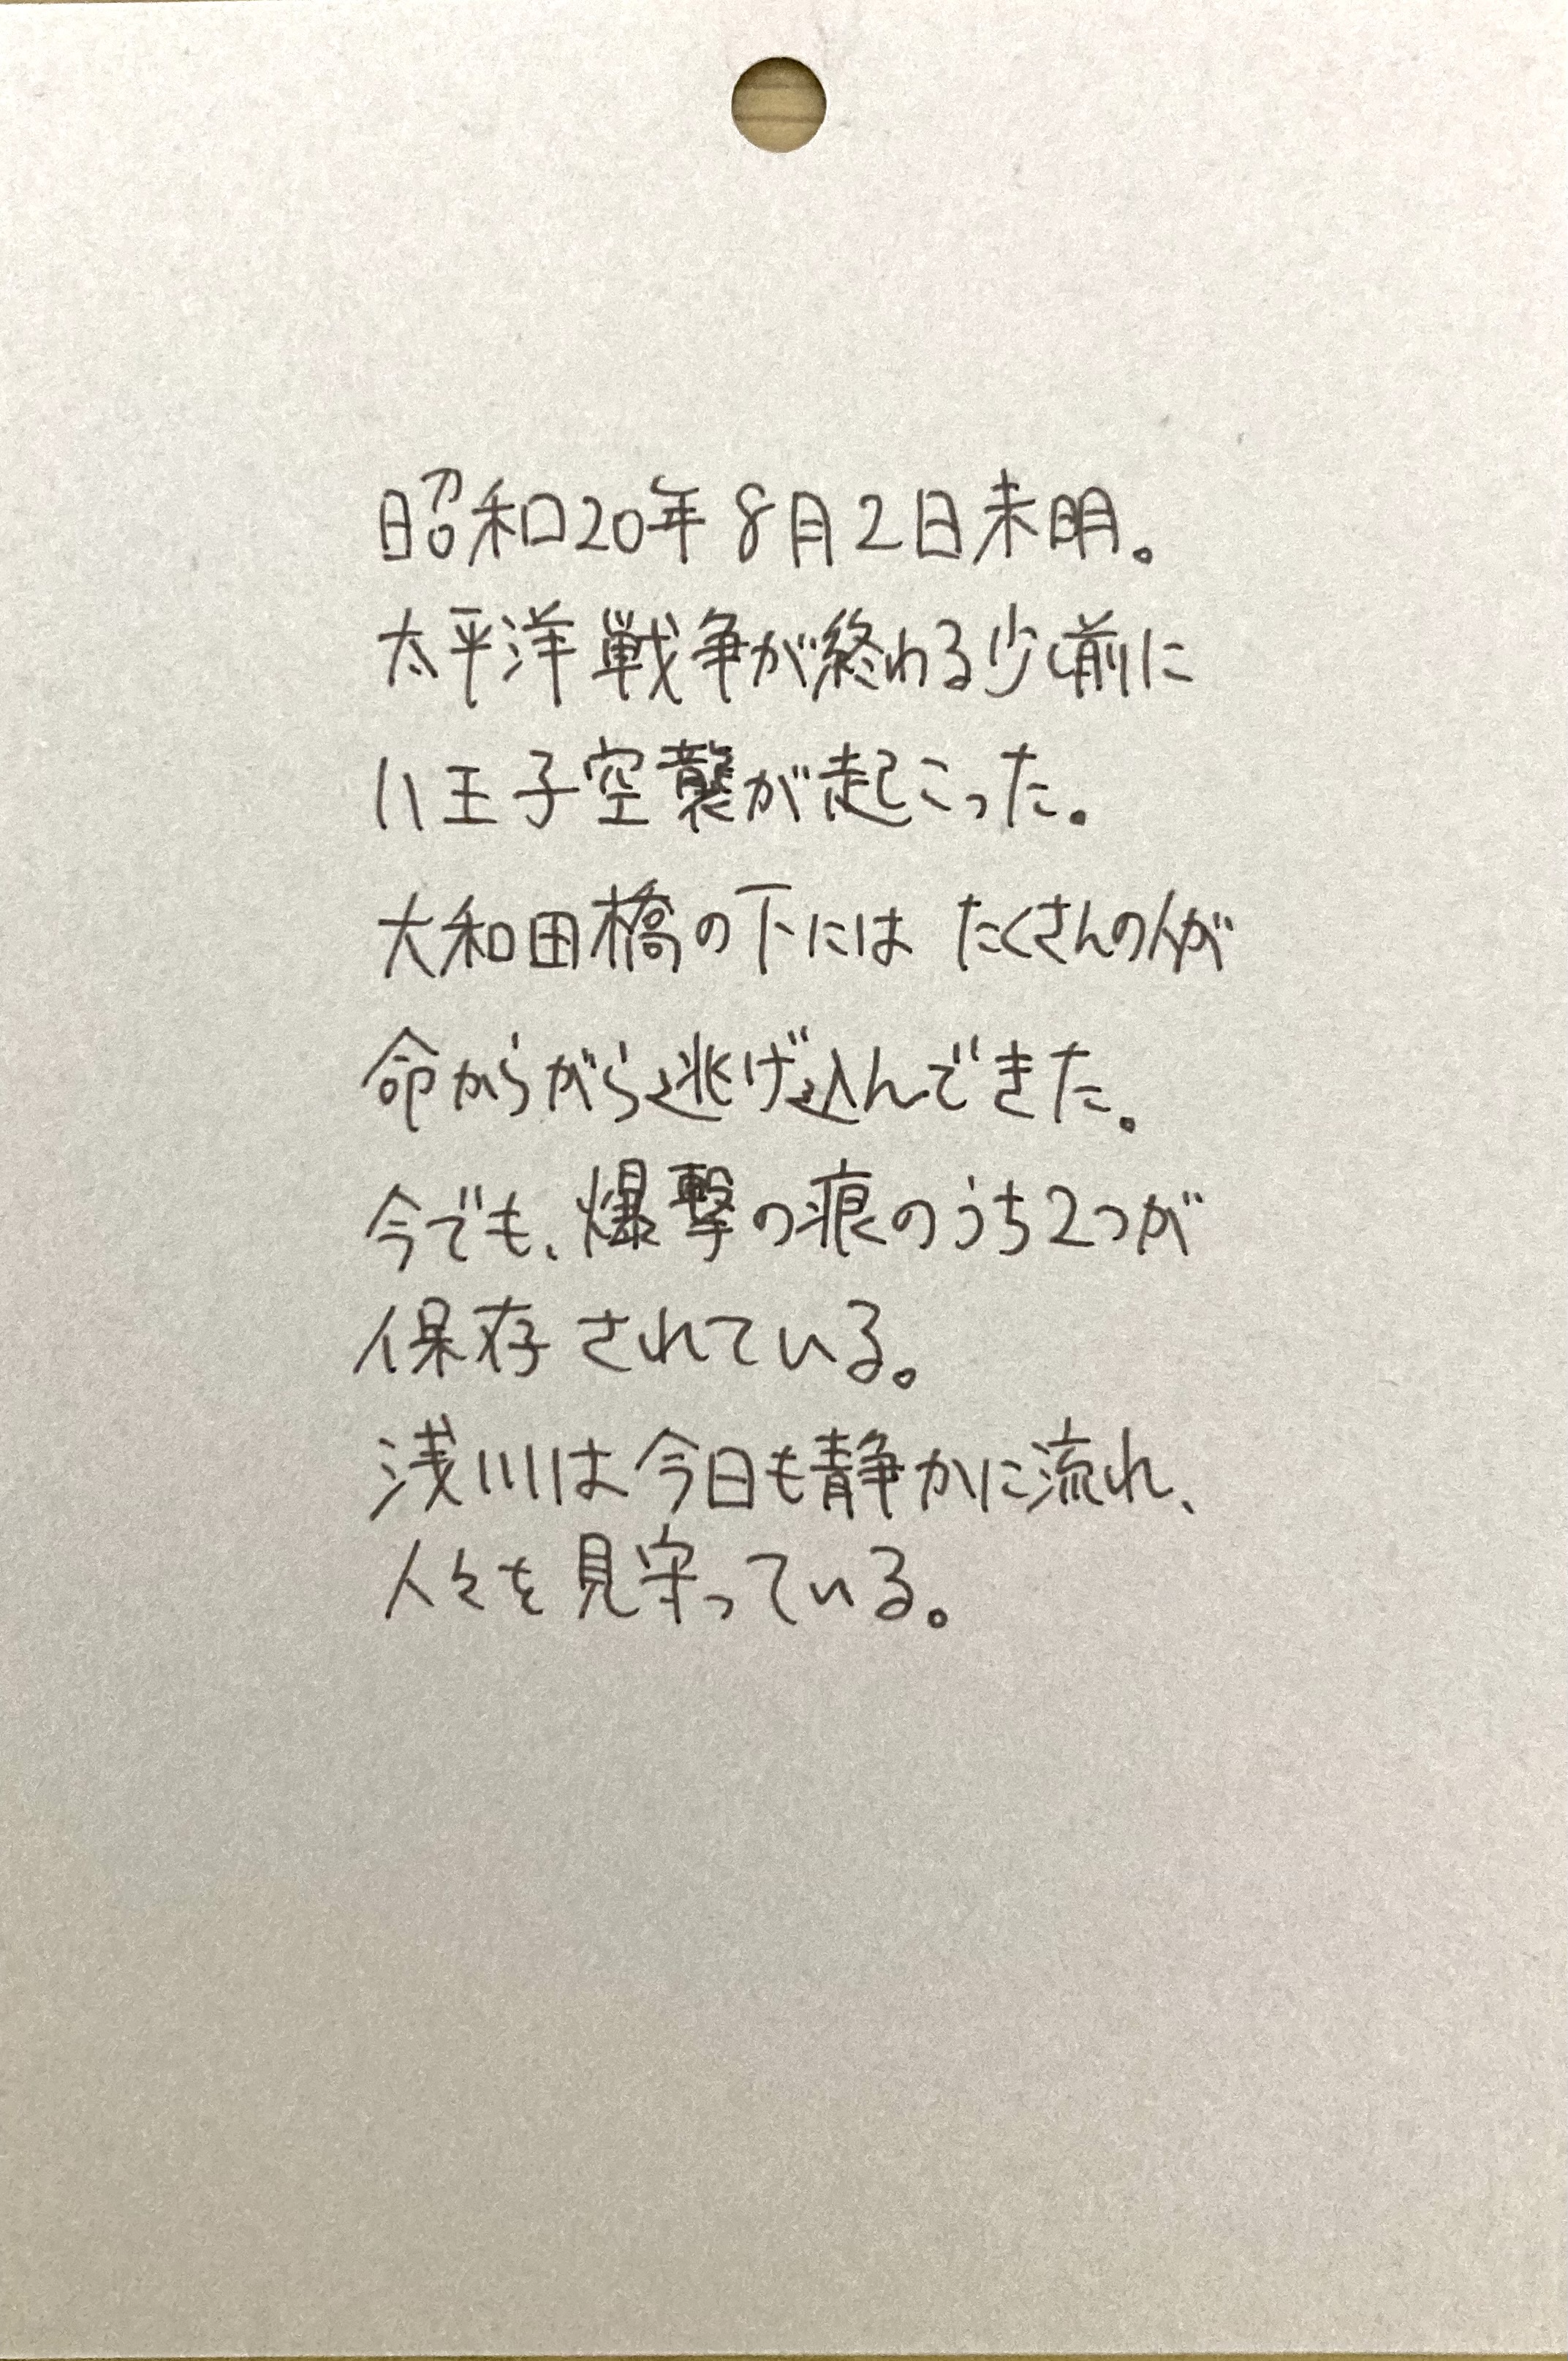 昭和20年8月2日未明。
太平洋戦争が終わる少し前に
八王子空襲が起こった。
大和田橋の下には たくさんの人が
命からがら逃げ込んできた。
今でも、爆撃の痕のうち2つが
保存されている。
浅川は今日も静かに流れ、
人々を見守っている。